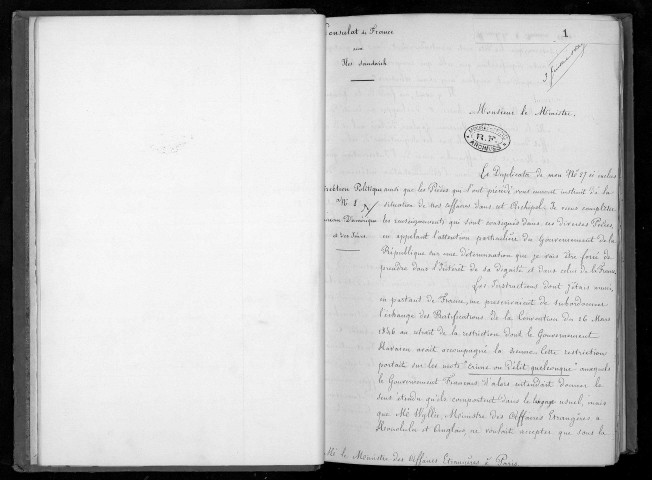 Consulat de France
aux
Iles Sandwich
1
Monsieur le Ministre,
AFFAIRES ÉTRANGÈRES
R.F.
ARCHIVES
Le Duplicata de mon Nº 27 ci inclus
Direction Politique
Nº 1
et des Indes
ainsi que les Pièces qui l'ont précédé vous auront instruit de la
situation de nos affaires dans cet Archipel. Je viens compléter
les renseignements qui sont consignés dans ces diverses Pièces,
en appelant l'attention particulière du Gouvernement de la
République sur une détermination que je vais être forcé de
prendre dans l'Intérêt de sa dignité et dans celui de la France.
Les Instructions dont j'étais muni,
en partant de France, me prescrivaient de subordonner
l'échange des Ratifications de la Convention du 26 Mars
1846 au retrait de la restriction dont le Gouvernement
Havaien avait accompagné la sienne. Cette restriction
portait sur les mots "crime ou Délit quelconque" auxquels
le Gouvernement Français d'alors entendait donner le
sens étendu qu'ils comportent dans le langage usuel, mais
que Mr Wyllie, Ministre des Affaires Etrangères, à
Honolulu et Anglais, ne voulait accepter que sous le
Mr le Ministre des Affaires Etrangères à Paris